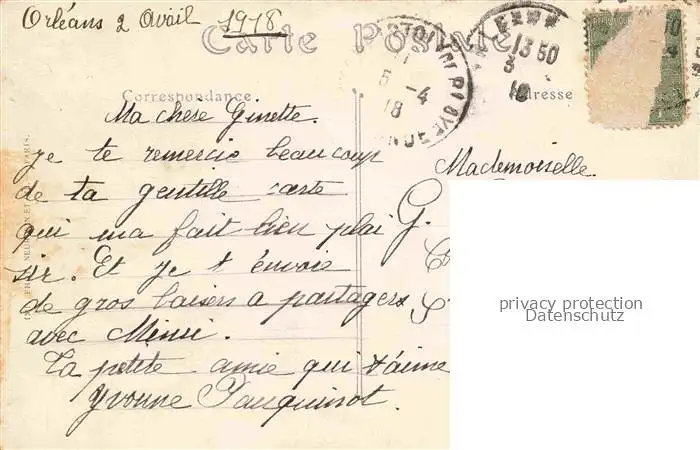 Orléans 2 avail 1918
Carte Postale
13 50
3
18
5 - 4
18
REPUBLIQUE
Correspondance
Adresse
Ma chère Ginette.
je te remercie beaucoup
de ta gentille carte
qui ma fait bien plai
sir. Et je t'envoie
de gros baisers a partager
avec Mimi.
Ta petite amie qui t'aime
Yvonne
Mademoiselle.
G.
privacy protection
Datenschutz